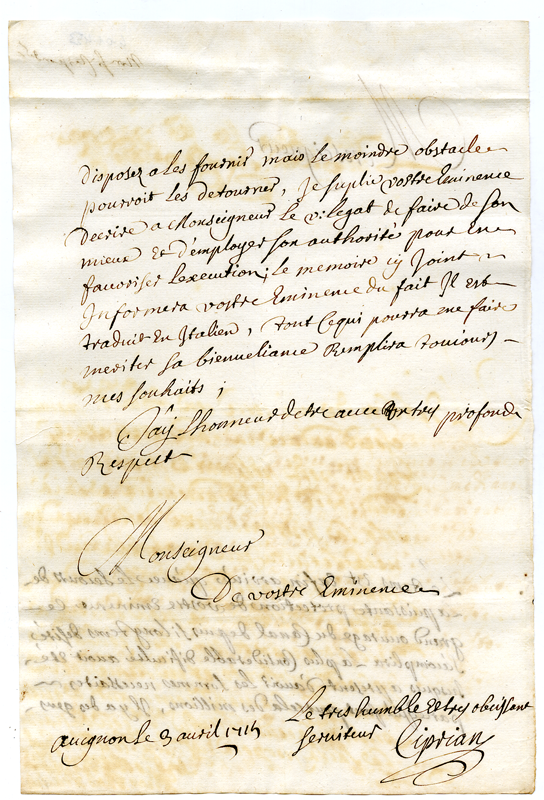 disposez a les fournir mais le moindre obstacle
pourroit les detourner, je suplie vostre Eminence
decrire a Monseigneur le v. legat de faire de son
mieux et d'employer son authorité pour en
favoriser l'execution; le memoire cy joint
Informera vostre Eminence du fait Il est
traduit en Italien, tout ce qui pourra me faire
meriter sa bienveliance Remplira toujours
mes souhaits;
J'ay l'honneur detre avec un tres profond
Respect
Monseigneur
De vostre Eminence
Le tres humble et tres obeissant
serviteur
Avignon le 3 avril
Ciprian